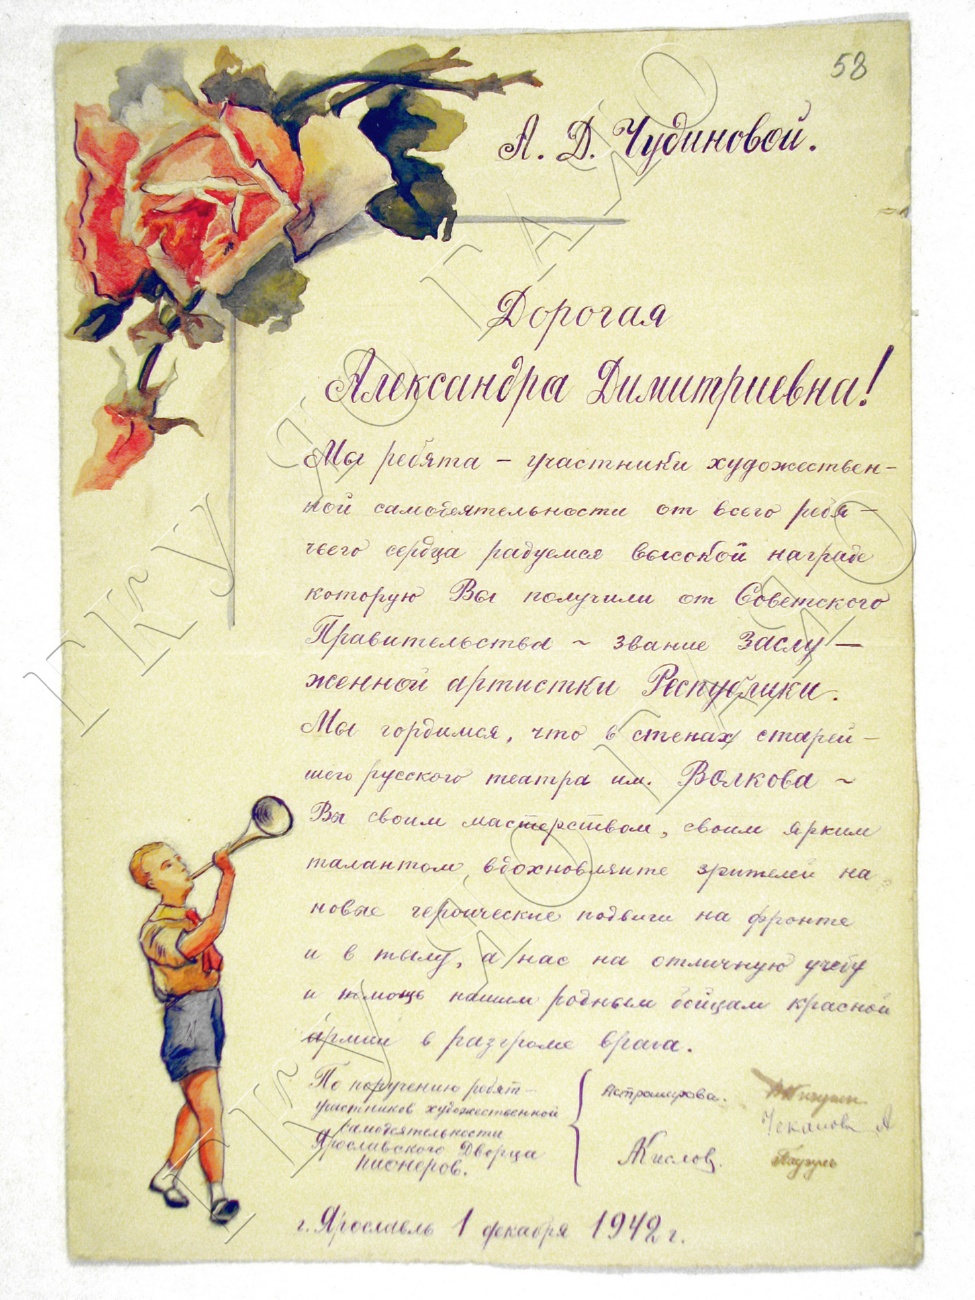 58
А. Д. Чудиновой.
Дорогая
Александра Димитриевна!
Мы ребята – участники художествен-
ной самодеятельности от всего ребя-
чьего сердца радуемся высокой награде
которую Вы получили от Советского
Правительства ~ звание заслу-
женной артистки Республики.
Мы гордимся, что в стенах старей-
шего русского театра им. Волкова ~
Вы своим мастерством, своим ярким
талантом, вдохновляете зрителей на
новые героические подвиги на фронте
и в тылу, а нас на отличную учебу
и помощь нашим родным бойцам красной
армии в разгроме врага.
По поручению ребят-
участников художественной
самодеятельности
Ярославского Дворца
пионеров.
Чеканова А
АКислов.
г. Ярославль 1 декабря 1942 г.
ГКУ ЯО ГАЯО
ГКУ ЯО ГАЯО